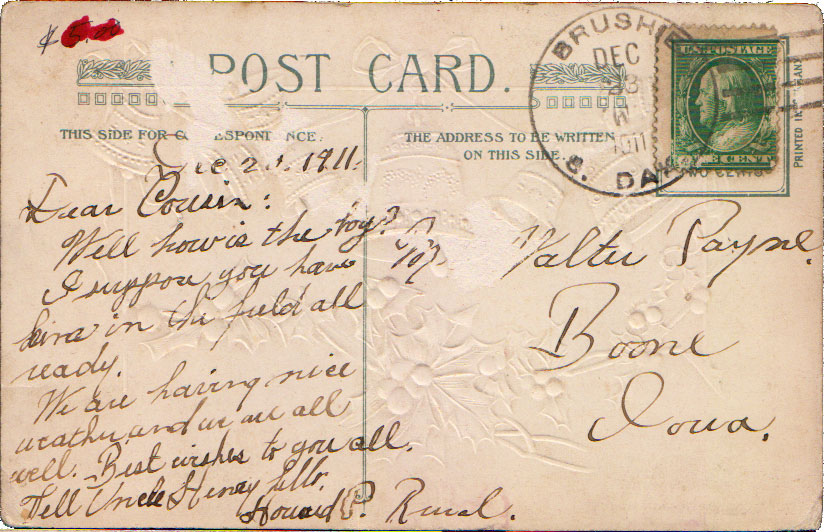 POST CARD.
THIS SIDE FOR
THE ADDRESS TO BE WRITTEN
ON THIS SIDE.
BRUSHIE
DEC
1911
S. DAK
U.S. POSTAGE
ONE CENT
PRINTED IN
1911.
Dear Cousin:
Well how is the boy?
I suppose you have
him in the field all
ready.
We are having nice
weather and we are all
well. Best wishes to you all.
Tell Uncle Henry hello.
Howard P.
Mr. Walter Payne.
Boone
Iowa.
Rural.